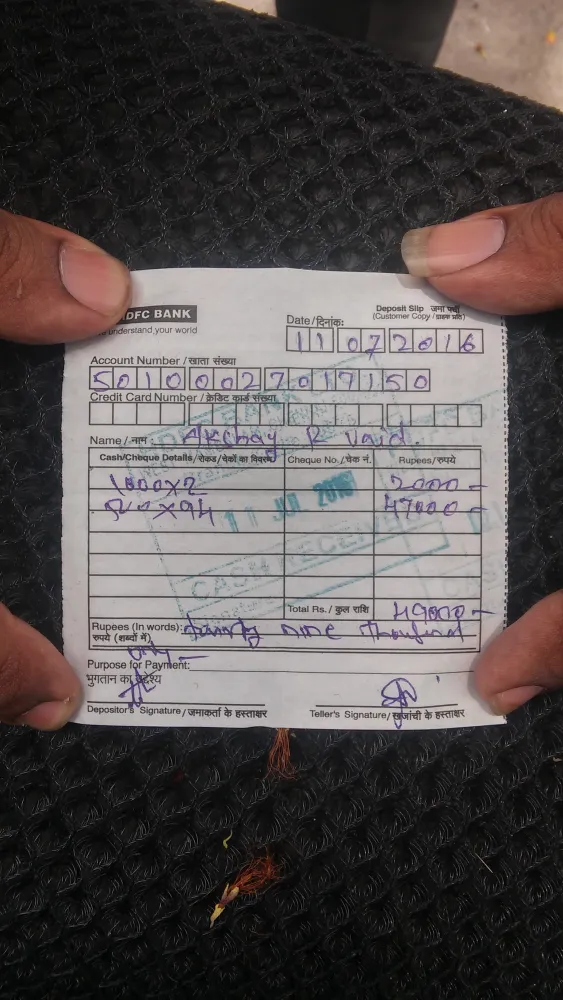 DFC BANK
understand your world
Deposit Slip जमा पर्ची
(Customer Copy / ग्राहक प्रति)
Date / दिनांक:
11072016
Account Number / खाता संख्या
50100027017150
Credit Card Number / क्रेडिट कार्ड संख्या
Name / नाम : Akchay R Vaid.
Cash/Cheque Details / रोकड/चेकों का विवरण Cheque No. / चेक नं. Rupees/रुपये
1000x2 2000 -
500x94 47000 -
11 JUL 2016
CASH RECEIVED
Total Rs. / कुल राशि 49000 -
Rupees (In words): nine Thousand
रुपये (शब्दों में)
only -
Purpose for Payment:
भुगतान का उद्देश्य
Depositor's Signature / जमाकर्ता के हस्ताक्षर Teller's Signature / खजांची के हस्ताक्षर